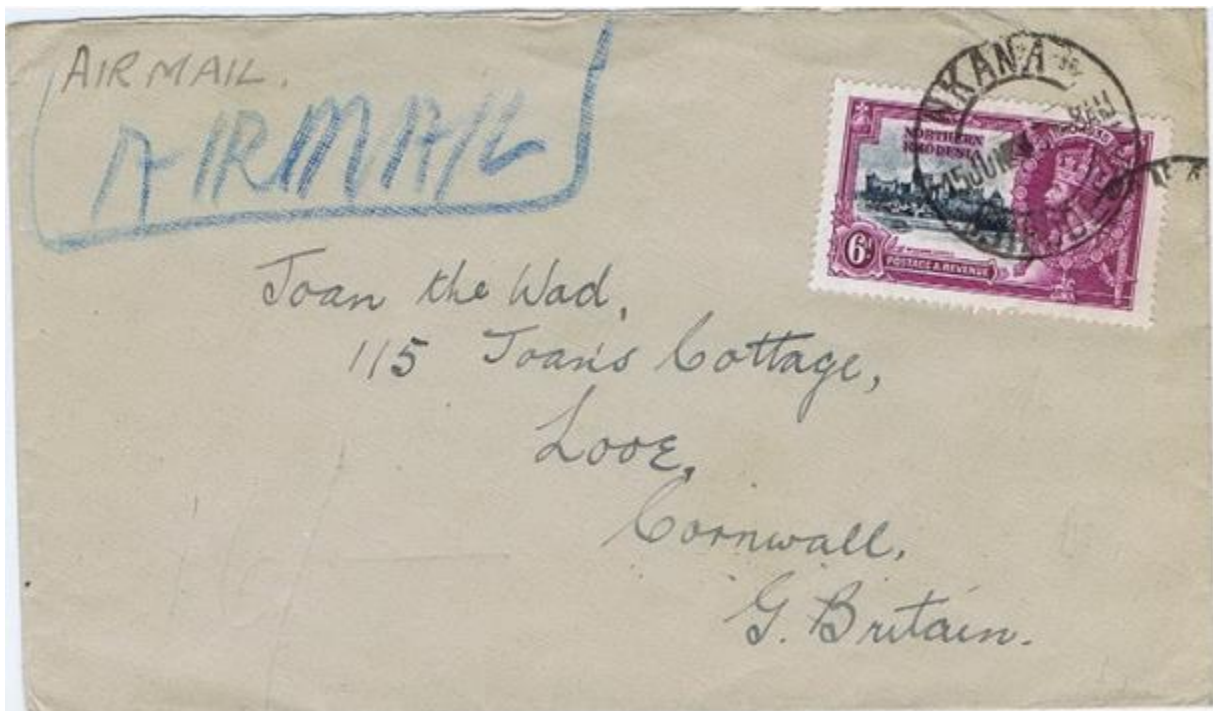 AIR MAIL.
AIRMAIL
NKANA
8 AM
NORTHERN
RHODESIA
6d
POSTAGE & REVENUE
Joan the Wad,
115 Joan's Cottage,
Looe,
Cornwall,
G. Britain.